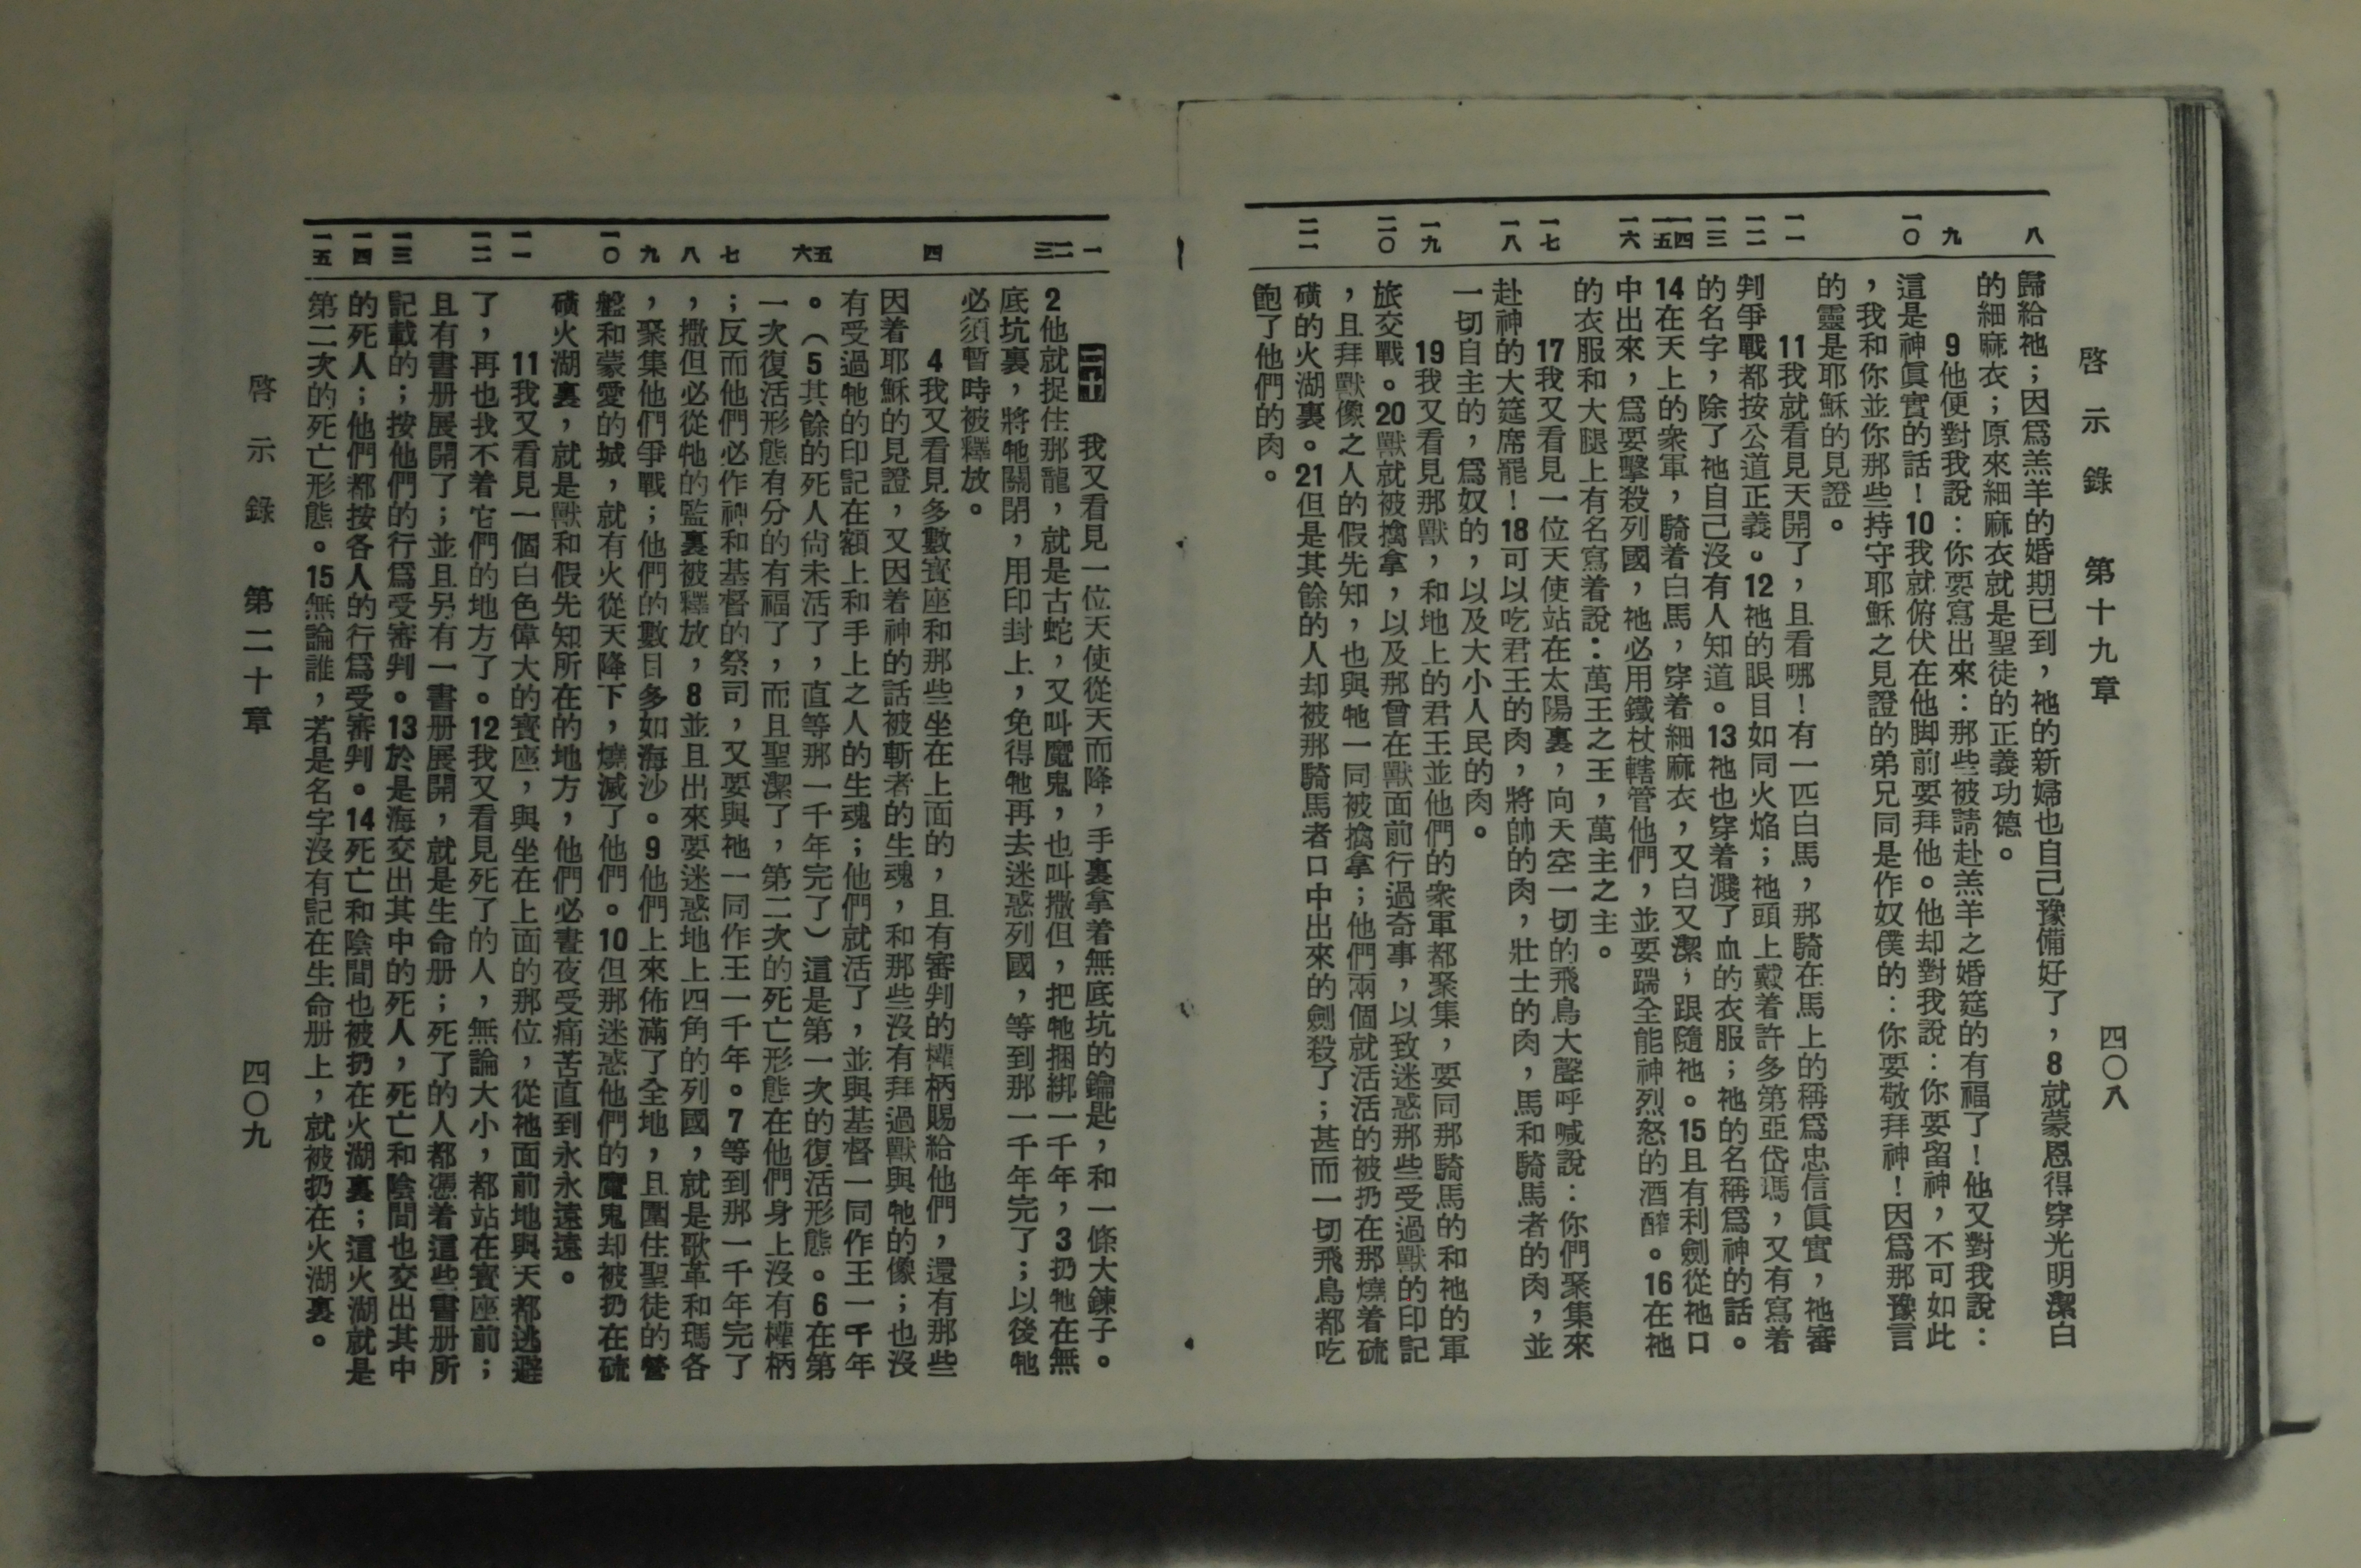 啓示錄 第十九章 四〇八
八 九 一〇 一一 一二 一三 一四 一五 一六 一七 一八 一九 二〇 二一
歸給祂；因爲羔羊的婚期已到，祂的新婦也自己豫備好了，8就蒙恩得穿光明潔白
的細麻衣；原來細麻衣就是聖徒的正義功德。
9他便對我說：你要寫出來：那些被請赴羔羊之婚筵的有福了！他又對我說：
這是神眞實的話！10我就俯伏在他脚前要拜他。他却對我說：你要留神，不可如此
，我和你並你那些持守耶穌之見證的弟兄同是作奴僕的：你要敬拜神！因爲那豫言
的靈是耶穌的見證。
11我就看見天開了，且看哪！有一匹白馬，那騎在馬上的稱爲忠信眞實，祂審
判爭戰都按公道正義。12祂的眼目如同火焰；祂頭上戴着許多第亞岱瑪，又有寫着
的名字，除了祂自己沒有人知道。13祂也穿着濺了血的衣服；祂的名稱爲神的話。
14在天上的衆軍，騎着白馬，穿着細麻衣，又白又潔，跟隨祂。15且有利劍從祂口
中出來，爲要擊殺列國，祂必用鐵杖轄管他們，並要踹全能神烈怒的酒醡。16在祂
的衣服和大腿上有名寫着說：萬王之王，萬主之主。
17我又看見一位天使站在太陽裏，向天空一切的飛鳥大聲呼喊說：你們聚集來
赴神的大筵席罷！18可以吃君王的肉，將帥的肉，壯士的肉，馬和騎馬者的肉，並
一切自主的，爲奴的，以及大小人民的肉。
19我又看見那獸，和地上的君王並他們的衆軍都聚集，要同那騎馬的和祂的軍
旅交戰。20獸就被擒拿，以及那曾在獸面前行過奇事，以致迷惑那些受過獸的印記
，且拜獸像之人的假先知，也與牠一同被擒拿；他們兩個就活活的被扔在那燒着硫
磺的火湖裏。21但是其餘的人却被那騎馬者口中出來的劍殺了；甚而一切飛鳥都吃
飽了他們的肉。
一 二 三 四 五 六 七 八 九 一〇 一一 一二 一三 一四 一五
二十 我又看見一位天使從天而降，手裏拿着無底坑的鑰匙，和一條大鍊子。
2他就捉住那龍，就是古蛇，又叫魔鬼，也叫撒但，把牠捆綁一千年，3扔牠在無
底坑裏，將牠關閉，用印封上，免得牠再去迷惑列國，等到那一千年完了；以後牠
必須暫時被釋放。
4我又看見多數寶座和那些坐在上面的，且有審判的權柄賜給他們，還有那些
因着耶穌的見證，又因着神的話被斬者的生魂，和那些沒有拜過獸與牠的像；也沒
有受過牠的印記在額上和手上之人的生魂；他們就活了，並與基督一同作王一千年
。（5其餘的死人尙未活了，直等那一千年完了）這是第一次的復活形態。6在第
一次復活形態有分的有福了，而且聖潔了，第二次的死亡形態在他們身上沒有權柄
；反而他們必作神和基督的祭司，又要與祂一同作王一千年。7等到那一千年完了
，撒但必從牠的監裏被釋放，8並且出來要迷惑地上四角的列國，就是歌革和瑪各
，聚集他們爭戰；他們的數目多如海沙。9他們上來佈滿了全地，且圍住聖徒的營
盤和蒙愛的城，就有火從天降下，燒滅了他們。10但那迷惑他們的魔鬼却被扔在硫
磺火湖裏，就是獸和假先知所在的地方，他們必晝夜受痛苦直到永永遠遠。
11我又看見一個白色偉大的寶座，與坐在上面的那位，從祂面前地與天都逃避
了，再也找不着它們的地方了。12我又看見死了的人，無論大小，都站在寶座前；
且有書册展開了；並且另有一書册展開，就是生命册；死了的人都憑着這些書册所
記載的；按他們的行爲受審判。13於是海交出其中的死人，死亡和陰間也交出其中
的死人；他們都按各人的行爲受審判。14死亡和陰間也被扔在火湖裏；這火湖就是
第二次的死亡形態。15無論誰，若是名字沒有記在生命册上，就被扔在火湖裏。
啓示錄 第二十章 四〇九